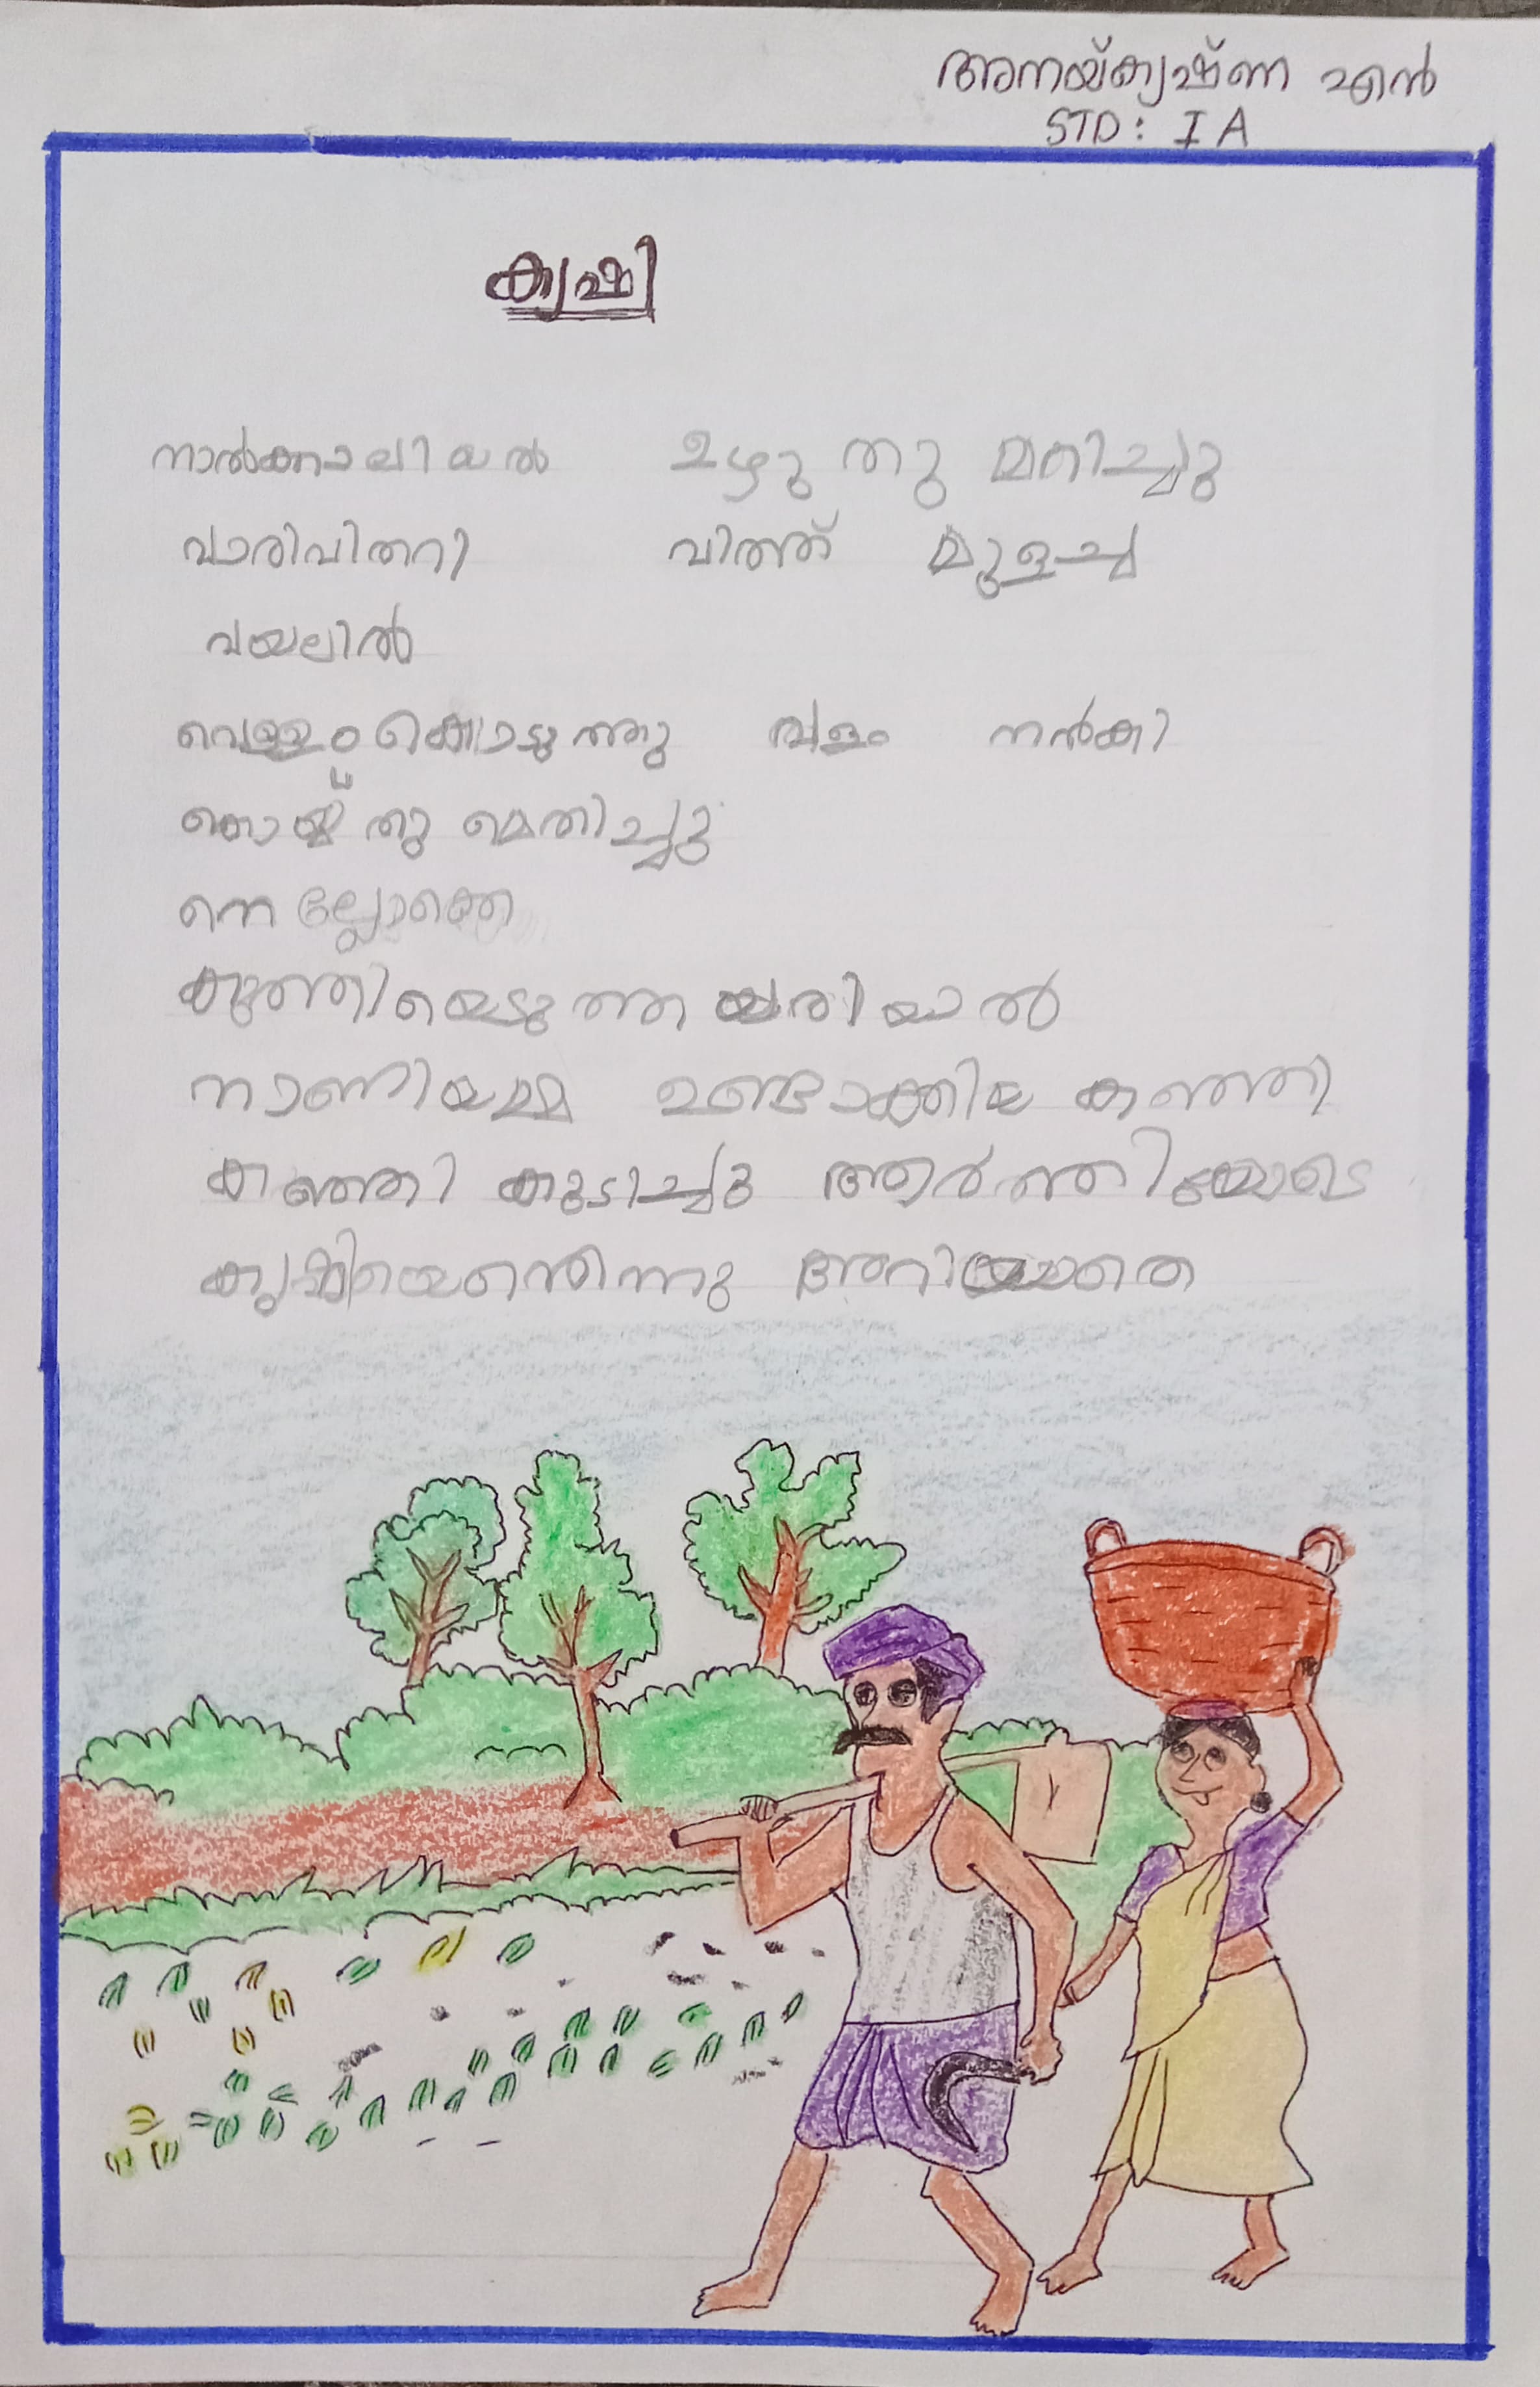 അനയ്കൃഷ്ണ എൻ
STD: I A
കൃഷി
നാൽക്കാലിയൽ ഉഴുതു മറിച്ചു
വാരിവിതറി വിത്ത് മുളച്ച
വയലിൽ
വെള്ളം കൊടുത്തു വളം നൽകി
കൊയ്തു മെതിച്ചു
നെല്ലൊക്കെ
കുത്തിയെടുത്ത യരിയാൽ
നാണിയമ്മ ഉണ്ടാക്കിയ കഞ്ഞി
കഞ്ഞി കുടിച്ചു ആർത്തിയോടെ
കൃഷിയെന്തെന്നു അറിയാതെ